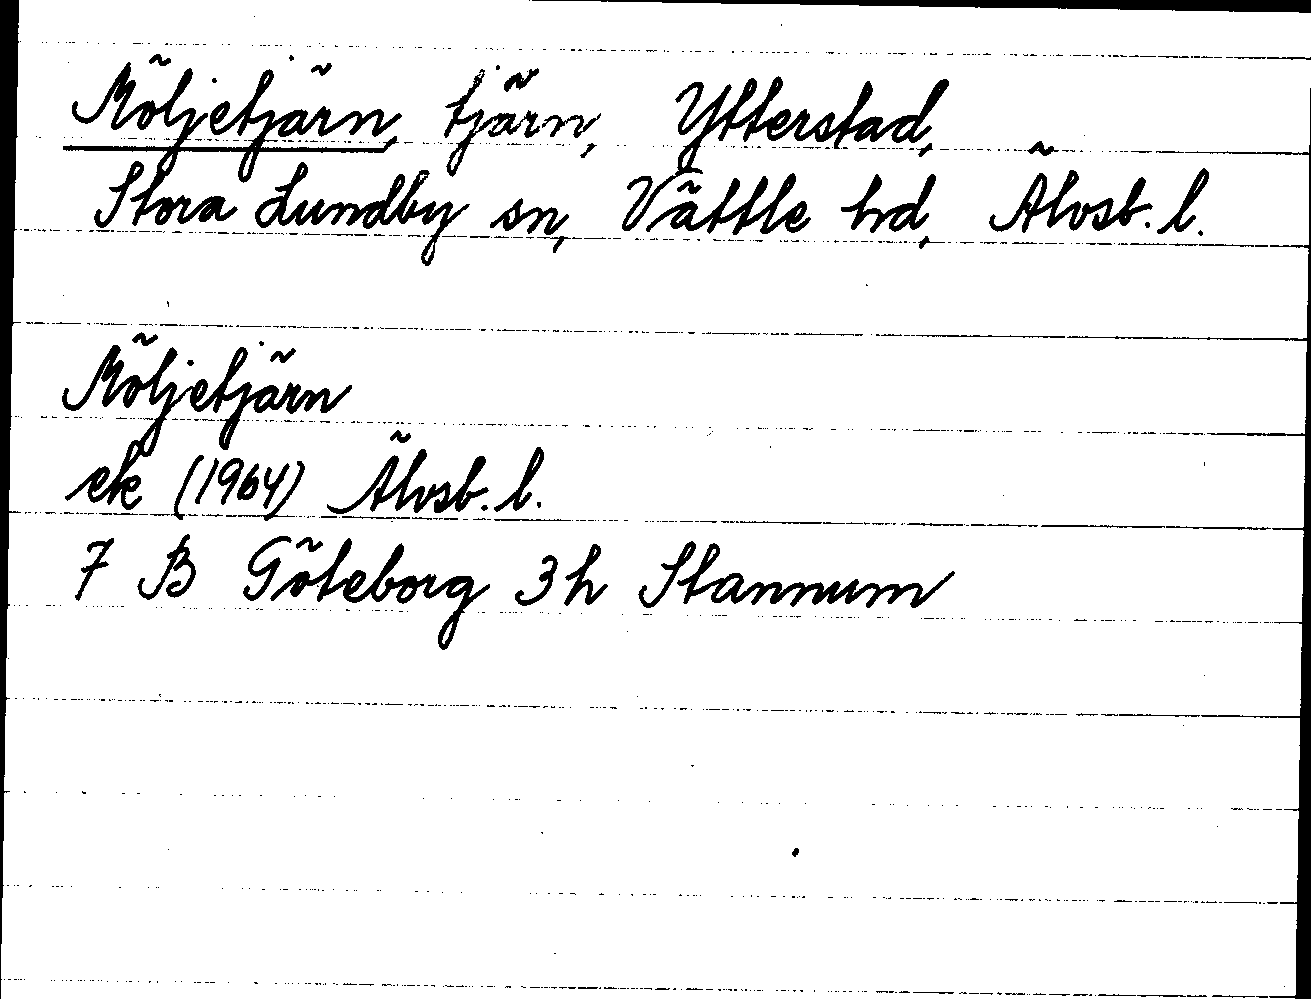 Möljetjärn, tjärn, Ytterstad,
Stora Lundby sn, Vättle hd, Älvsb. l.
Möljetjärn
ek (1964) Älvsb. l.
7 B Göteborg 3h Stannum